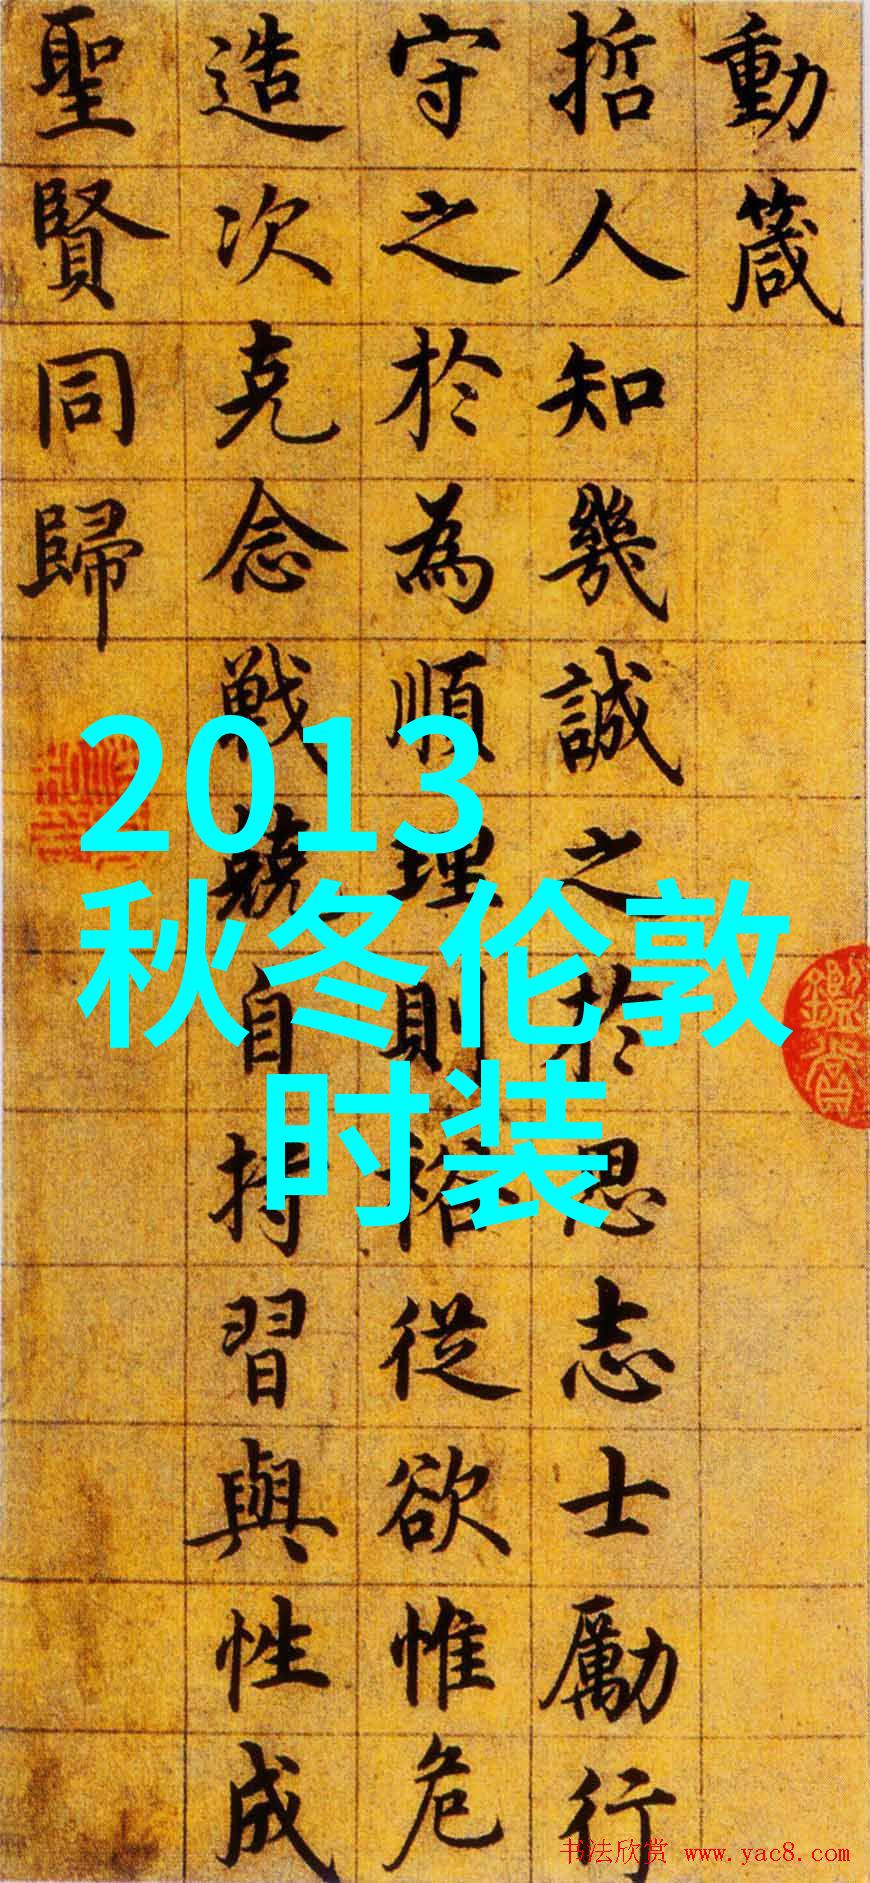 動箴
哲人知幾誠之於思志士勵行
守之於為順理則裕從欲惟危
造次克念戰兢自持習與性成
聖賢同歸
2013
秋冬伦敦
时装
书法欣赏 www.yac8.com